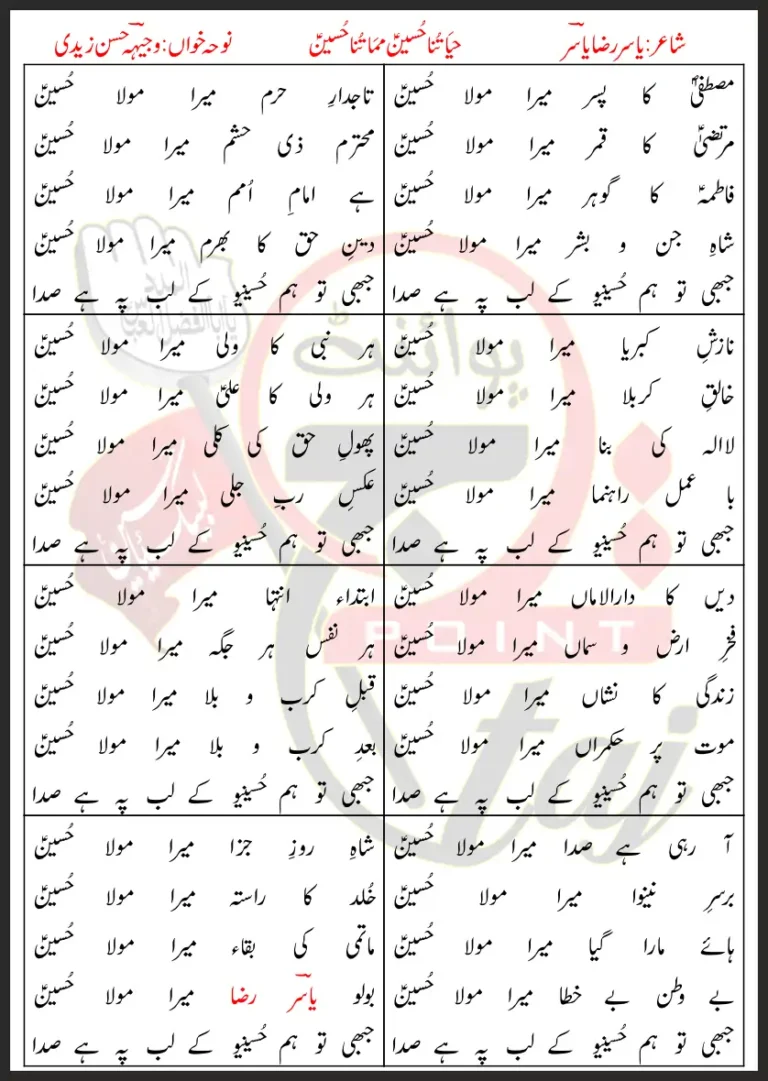 شاعر: یاسر رضا یاسرؔ
حیاتُنا حُسینؑ مماتُنا حُسینؑ
نوحہ خواں: وجیہہ حسن زیدی
مصطفیٰؐ کا پسر میرا مولا حُسینؑ
مرتضیٰؑ کا قمر میرا مولا حُسینؑ
فاطمہؑ کا گوہر میرا مولا حُسینؑ
شاہِ جن و بشر میرا مولا حُسینؑ
جبھی تو ہم حُسینیو کے لب پہ ہے صدا
تاجدارِ حرم میرا مولا حُسینؑ
محترم ذی حشم میرا مولا حُسینؑ
ہے امامِ اُمم میرا مولا حُسینؑ
دینِ حق کا بھرم میرا مولا حُسینؑ
جبھی تو ہم حُسینیو کے لب پہ ہے صدا
نازشِ کبریا میرا مولا حُسینؑ
خالقِ کربلا میرا مولا حُسینؑ
لاالہ کی بنا میرا مولا حُسینؑ
با عمل راہنما میرا مولا حُسینؑ
جبھی تو ہم حُسینیو کے لب پہ ہے صدا
ہر نبی کا ولی میرا مولا حُسینؑ
ہر ولی کا علیؑ میرا مولا حُسینؑ
پھولِ حق کی کلی میرا مولا حُسینؑ
عکسِ ربِ جلی میرا مولا حُسینؑ
جبھی تو ہم حُسینیو کے لب پہ ہے صدا
دیں کا دارالاماں میرا مولا حُسینؑ
فخرِ ارض و سماں میرا مولا حُسینؑ
زندگی کا نشاں میرا مولا حُسینؑ
موت پر حکمراں میرا مولا حُسینؑ
جبھی تو ہم حُسینیو کے لب پہ ہے صدا
ابتداء انتہا میرا مولا حُسینؑ
ہر نفس ہر جگہ میرا مولا حُسینؑ
قبلِ کرب و بلا میرا مولا حُسینؑ
بعدِ کرب و بلا میرا مولا حُسینؑ
جبھی تو ہم حُسینیو کے لب پہ ہے صدا
آ رہی ہے صدا میرا مولا حُسینؑ
برسرِ نینوا میرا مولا حُسینؑ
ہائے مارا گیا میرا مولا حُسینؑ
بے وطن بے خطا میرا مولا حُسینؑ
جبھی تو ہم حُسینیو کے لب پہ ہے صدا
شاہِ روزِ جزا میرا مولا حُسینؑ
خُلد کا راستہ میرا مولا حُسینؑ
ماتمی کی بقاء میرا مولا حُسینؑ
بولو یاسرؔ رضا میرا مولا حُسینؑ
جبھی تو ہم حُسینیو کے لب پہ ہے صدا
پوائنٹ
POINT
taj